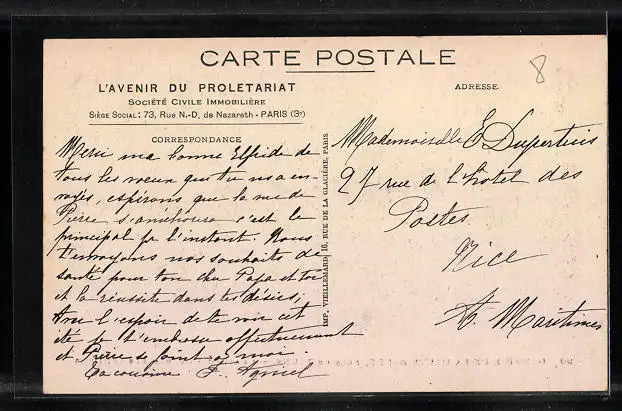 CARTE POSTALE
L'AVENIR DU PROLETARIAT
SOCIÉTÉ CIVILE IMMOBILIÈRE
SIÈGE SOCIAL: 73, Rue N.-D. de Nazareth - PARIS (3ᵉ)
CORRESPONDANCE
Merci ma bonne Elfride de
tous les voeux que tu nous a en-
voyés, espérons que la vue de
Pierre s'améliorera c'est le
principal pr l'instant. Nous
t'envoyons nos souhaits de
santé pour ton cher Papa et toi
et la réussite dans tes désirs;
Avec l'espoir de te voir cet
été je t'embrasse affectueusement
et Pierre se joint à moi.
Ta cousine F. Agniel
IMP. VIEILLEMARD, 16, RUE DE LA GLACIÈRE, PARIS
ADRESSE
8
Mademoiselle E Dupertuis
27 rue de l'hotel des
Postes
Nice
A. Maritimes